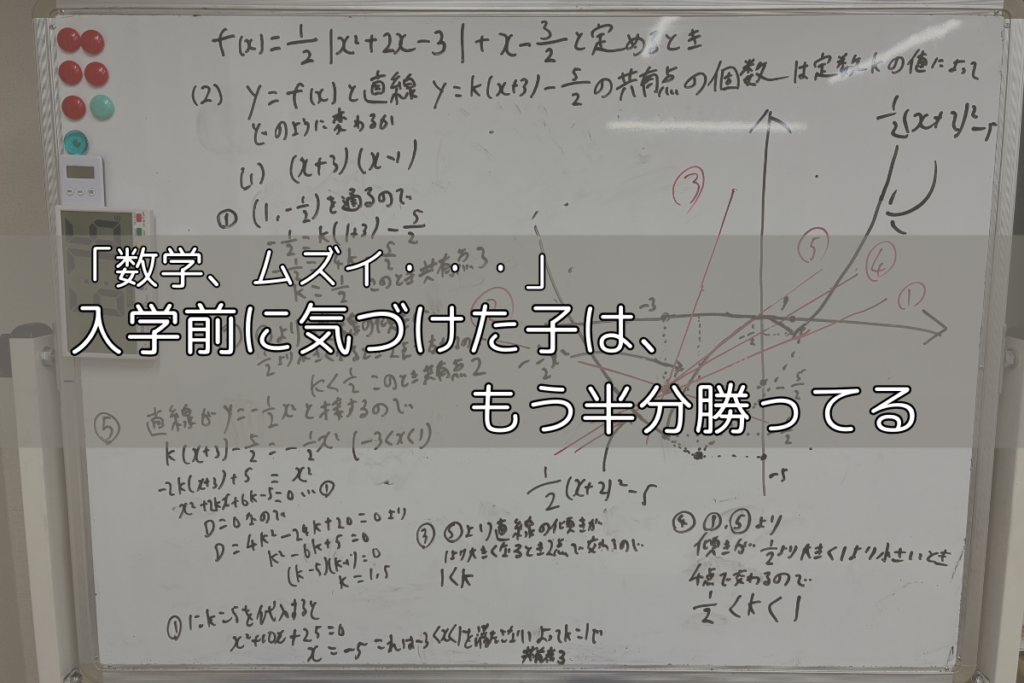 f(x)=1/2|x²+2x-3|+x-3/2と定めるとき
(2) y=f(x)と直線 y=k(x+3)-5/2の共有点の個数は定数kの値によって
どのように変わるか
(1) (x+3)(x-1)
① (1,-1/2)を通るので
-1/2=k(1+3)-5/2
このとき共有点3
k<1/2 このとき共有点2
「数学、ムズイ・・・」
入学前に気づけた子は、
もう半分勝ってる
⑤ 直線が y=-1/2x²と接するので
k(x+3)-5/2=-1/2x² (-3<x<1)
-2k(x+3)+5=x²
x²+2kx+6k-5=0…①
D=0なので
D=4k²-24k+20=0より
k²-6k+5=0
(k-5)(k-1)=0
k=1,5
①にk=5を代入すると
x²+10x+25=0
x=-5 これは-3<x<1を満たさない よってk=1で
共有点3
③ ⑤より直線の傾きが
1より大きくなるとき2点で交わるので
1<k
④ ①,⑤より
傾きが1/2より大きく1より小さいとき
4点で交わるので
1/2<k<1
1/2(x+2)²-5
③
⑤
④
①
-3
-5/2
-5
1/2(x+2)²-5